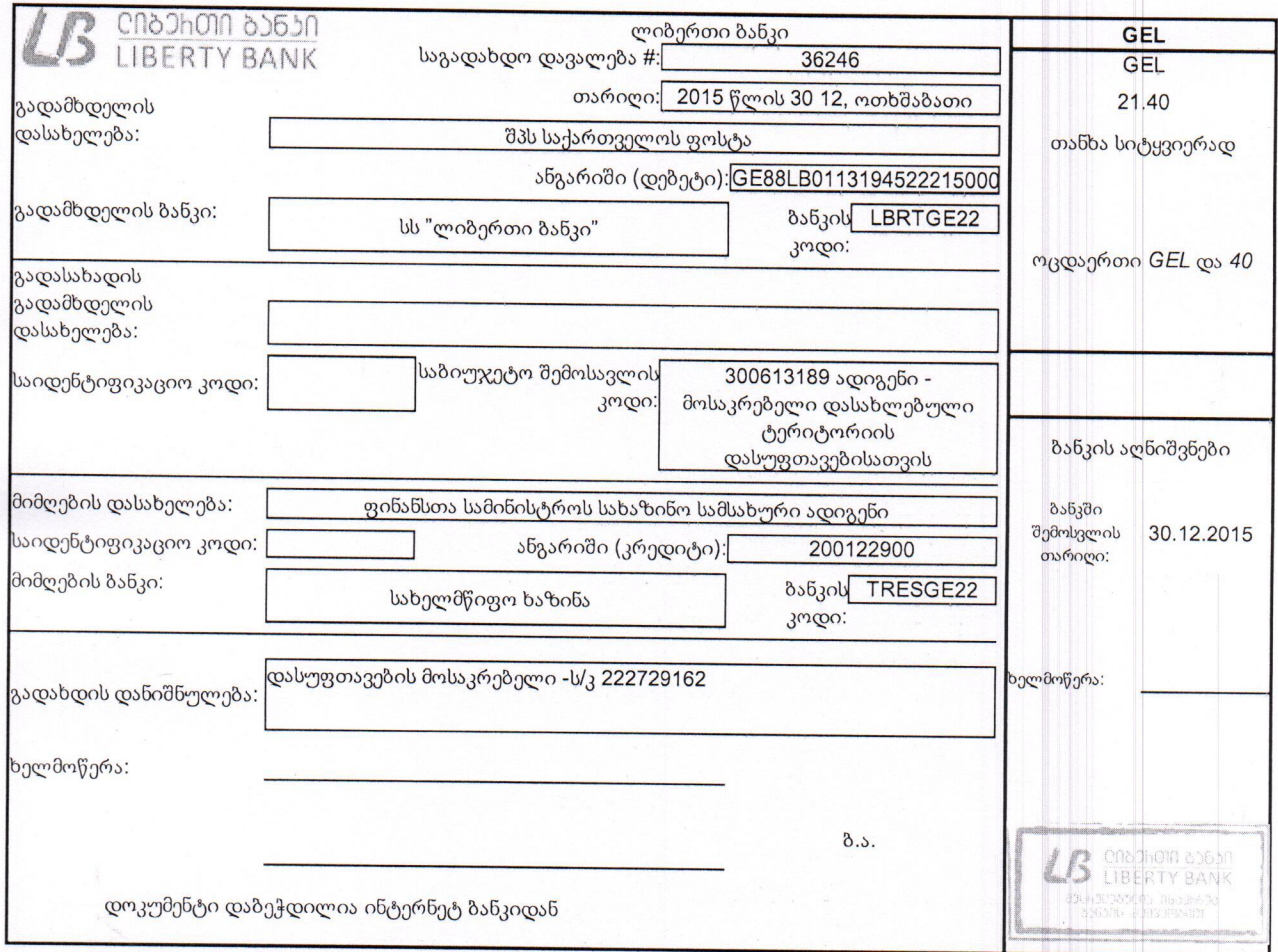 ლიბერთი ბანკი
LIBERTY BANK
ლიბერთი ბანკი
საგადახდო დავალება #: 36246
თარიღი: 2015 წლის 30 12, ოთხშაბათი
გადამხდელის
დასახელება: შპს საქართველოს ფოსტა
ანგარიში (დებეტი): GE88LB0113194522215000
გადამხდელის ბანკი: სს "ლიბერთი ბანკი" ბანკის LBRTGE22
კოდი:
გადასახადის
გადამხდელის
დასახელება:
საიდენტიფიკაციო კოდი: საბიუჯეტო შემოსავლის 300613189 ადიგენი -
კოდი: მოსაკრებელი დასახლებული
ტერიტორიის
დასუფთავებისათვის
მიმღების დასახელება: ფინანსთა სამინისტროს სახაზინო სამსახური ადიგენი
საიდენტიფიკაციო კოდი: ანგარიში (კრედიტი): 200122900
მიმღების ბანკი: სახელმწიფო ხაზინა ბანკის TRESGE22
კოდი:
გადახდის დანიშნულება: დასუფთავების მოსაკრებელი -ს/კ 222729162
ხელმოწერა:
ბ.ა.
დოკუმენტი დაბეჭდილია ინტერნეტ ბანკიდან
GEL
GEL
21.40
თანხა სიტყვიერად
ოცდაერთი GEL და 40
ბანკის აღნიშვნები
ბანკში
შემოსვლის 30.12.2015
თარიღი:
ხელმოწერა:
ლიბერთი ბანკი
LIBERTY BANK